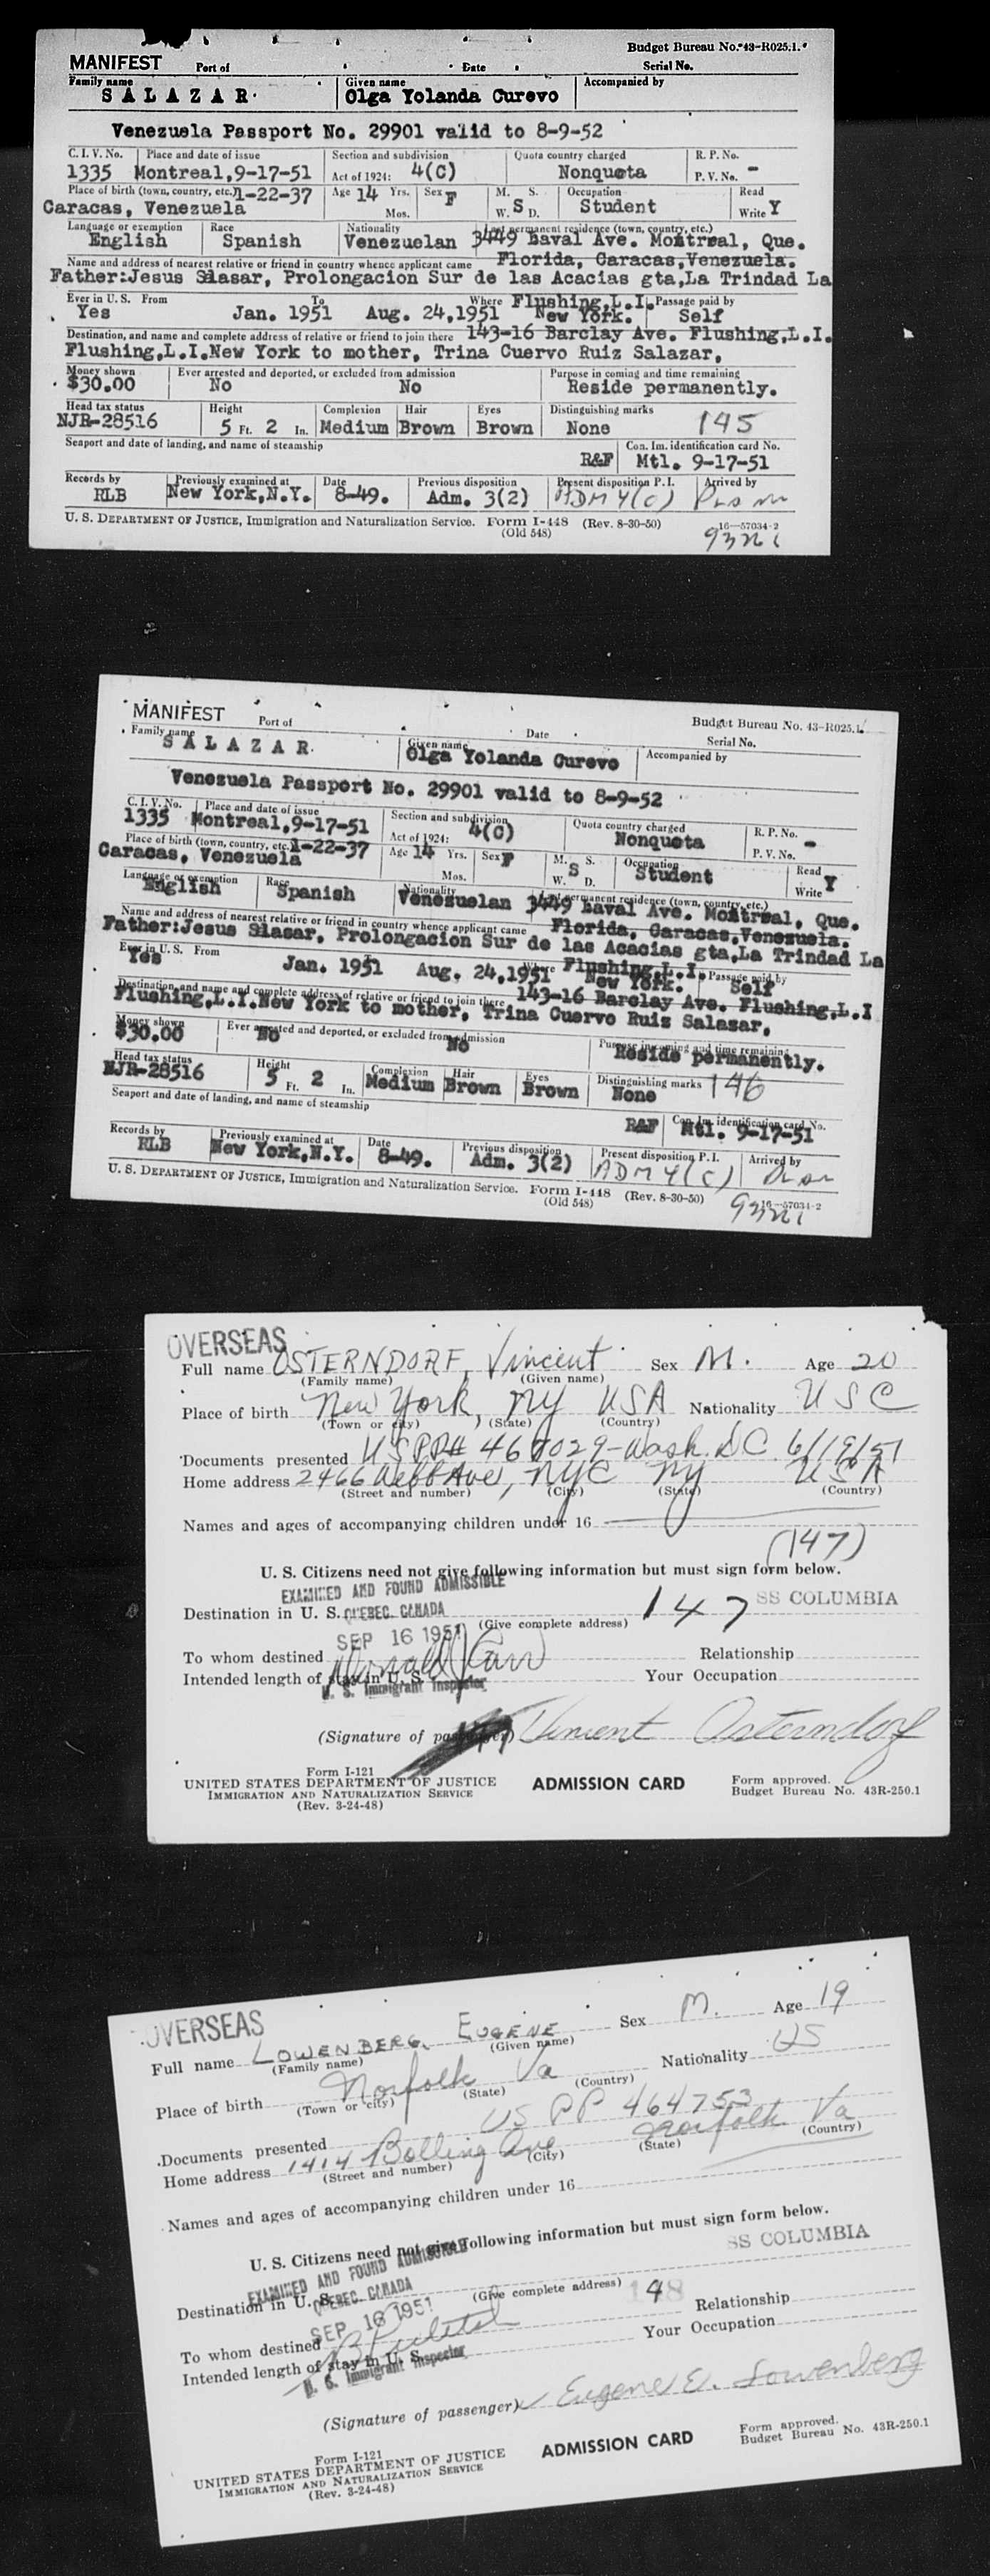 Budget Bureau No. 43-R025.1.
MANIFEST Port of Date Serial No.
Family name Given name Accompanied by
SALAZAR Olga Yolanda Curevo
Venezuela Passport No. 29901 valid to 8-9-52
C. I. V. No. Place and date of issue Section and subdivision Quota country charged R. P. No.
1335 Montreal,9-17-51 Act of 1924: 4(C) Nonquota P. V. No. -
Place of birth (town, country, etc.) 1-22-37 Age 14 Yrs. Sex F M. S. Occupation Read
Caracas, Venezuela Mos. W. S D. Student Write Y
Language or exemption Race Nationality Last permanent residence (town, country, etc.)
English Spanish Venezuelan 3449 Laval Ave. Montreal, Que.
Name and address of nearest relative or friend in country whence applicant came Florida, Caracas,Venezuela.
Father:Jesus Slasar, Prolongacion Sur de las Acacias gta,La Trindad La
Ever in U. S. From To Where Flushing,L.I. Passage paid by
Yes Jan. 1951 Aug. 24,1951 New York. Self
Destination, and name and complete address of relative or friend to join there 143-16 Barclay Ave. Flushing,L.I.
Flushing,L.I.New York to mother, Trina Cuervo Ruiz Salazar,
Money shown Ever arrested and deported, or excluded from admission Purpose in coming and time remaining
$30.00 No No Reside permanently.
Head tax status Height Complexion Hair Eyes Distinguishing marks 145
NJR-28516 5 Ft. 2 In. Medium Brown Brown None
Seaport and date of landing, and name of steamship Con. Im. identification card No.
R&F Mtl. 9-17-51
Records by Previously examined at Date Previous disposition Present disposition P. I. Arrived by
RLB New York,N.Y. 8-49. Adm. 3(2) ADM 4(C)
U. S. DEPARTMENT OF JUSTICE, Immigration and Naturalization Service. Form I-448 (Rev. 8-30-50) 16—57034-2
(Old 548)
MANIFEST Port of Date Budget Bureau No. 43-R025.1.
Family name Given name Serial No.
SALAZAR Olga Yolanda Curevo Accompanied by
Venezuela Passport No. 29901 valid to 8-9-52
C. I. V. No. Place and date of issue Section and subdivision Quota country charged R. P. No.
1335 Montreal,9-17-51 Act of 1924: 4(C) Nonquota P. V. No. -
Place of birth (town, country, etc.) 1-22-37 Age 14 Yrs. Sex F M. S. Occupation Read
Caracas, Venezuela Mos. W. S D. Student Write Y
Language or exemption Race Nationality Last permanent residence (town, country, etc.)
English Spanish Venezuelan 3449 Laval Ave. Montreal, Que.
Name and address of nearest relative or friend in country whence applicant came Florida, Caracas,Venezuela.
Father:Jesus Slasar, Prolongacion Sur de las Acacias gta,La Trindad La
Ever in U. S. From Where Flushing,L.I. Passage paid by
Yes Jan. 1951 Aug. 24,1951 New York. Self
Destination, and name and complete address of relative or friend to join there 143-16 Barclay Ave. Flushing,L.I
Flushing,L.I.New York to mother, Trina Cuervo Ruiz Salazar,
Money shown Ever arrested and deported, or excluded from admission Purpose in coming and time remaining
$30.00 No No Reside permanently.
Head tax status Height Complexion Hair Eyes Distinguishing marks 146
NJR-28516 5 Ft. 2 In. Medium Brown Brown None
Seaport and date of landing, and name of steamship Con. Im. identification card No.
R&F Mtl. 9-17-51
Records by Previously examined at Date Previous disposition Present disposition P. I. Arrived by
RLB New York,N.Y. 8-49. Adm. 3(2) ADM 4(C)
U. S. DEPARTMENT OF JUSTICE, Immigration and Naturalization Service. Form I-448 (Rev. 8-30-50) 16—57034-2
(Old 548)
OVERSEAS
Full name OSTERNDORF, Vincent Sex M. Age 20
(Family name) (Given name)
Place of birth New York, NY USA Nationality USC
(Town or city) (State) (Country)
Documents presented USPP# 467029-Wash. DC 6/19/51
Home address 2466 Webb Ave, NYC NY USA
(Street and number) (City) (State) (Country)
Names and ages of accompanying children under 16
(147)
U. S. Citizens need not give following information but must sign form below.
EXAMINED AND FOUND ADMISSIBLE
Destination in U. S. QUEBEC, CANADA (Give complete address) 147 SS COLUMBIA
SEP 16 1951
To whom destined Relationship
Intended length of stay in U. S. Your Occupation
U. S. Immigrant Inspector
(Signature of passenger) Vincent Osterndorf
Form I-121
UNITED STATES DEPARTMENT OF JUSTICE ADMISSION CARD Form approved.
IMMIGRATION AND NATURALIZATION SERVICE Budget Bureau No. 43R-250.1
(Rev. 3-24-48)
OVERSEAS
Full name LOWENBERG, EUGENE Sex M. Age 19
(Family name) (Given name)
Place of birth Norfolk Va Nationality US
(Town or city) (State) (Country)
Documents presented US PP 464753
Home address 1414 Bolling Ave Norfolk Va
(Street and number) (City) (State) (Country)
Names and ages of accompanying children under 16
U. S. Citizens need not give following information but must sign form below.
EXAMINED AND FOUND ADMISSIBLE SS COLUMBIA
Destination in U. S. QUEBEC, CANADA (Give complete address) 148
SEP 16 1951
To whom destined Relationship
Intended length of stay in U. S. Your Occupation
U. S. Immigrant Inspector
(Signature of passenger) Eugene E. Lowenberg
Form I-121
UNITED STATES DEPARTMENT OF JUSTICE ADMISSION CARD Form approved.
IMMIGRATION AND NATURALIZATION SERVICE Budget Bureau No. 43R-250.1
(Rev. 3-24-48)